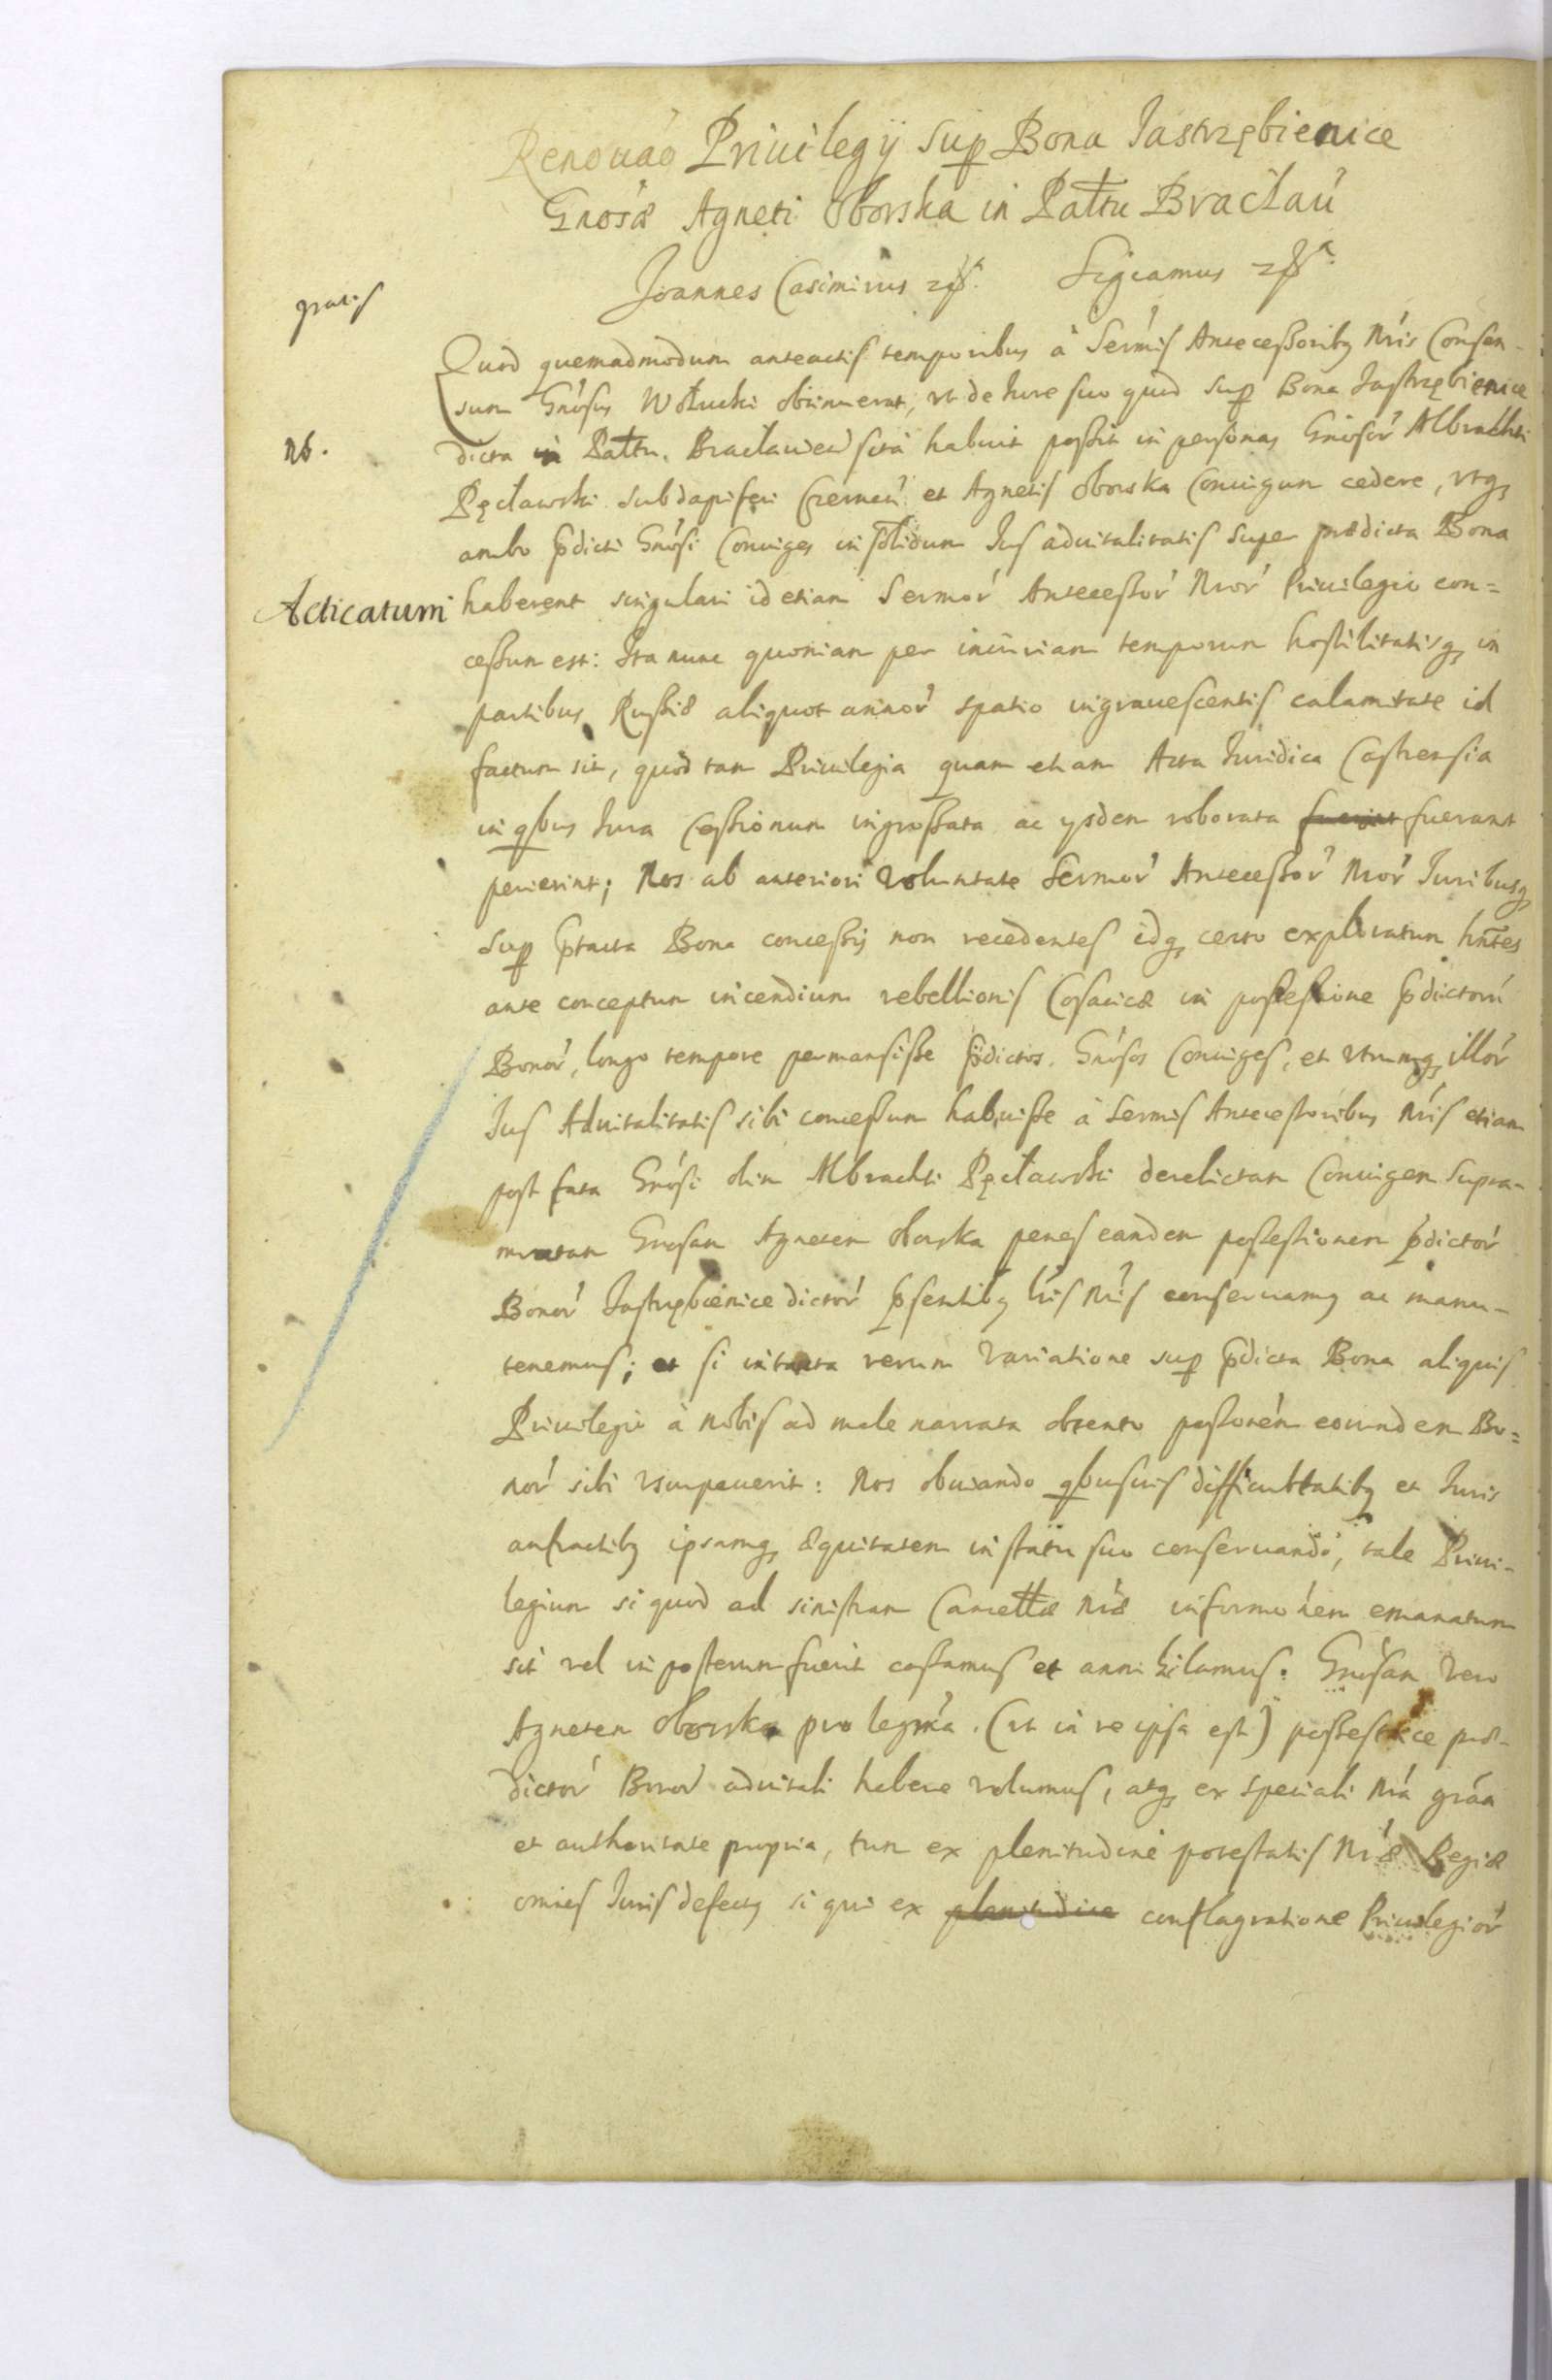 Renouaõ Priuilegÿ Sup Bona Jastrzębienice
Gnosæ Agneti Oborska in Pałtu Bracłaú
Joannes Casimirus Sigcamus
gratis
Quod quemadmodum anteactis temporibus à Sermis Antecessoribq Nris Consen-
sum Gnosus Wołucki obtinuerat, vt de Iure suo quod Sup Bona Jastrzębienice
nb.
dicta in Pałtu. Bracłauien sita habuit possit in personas Gnosor Albrachti
Pęcławski Subdapiferi Czerneú et Agnetis Oborska Coniugum cedere, vtq
ambo pdicti Gnosi Coniuges in solidum Jus aduitalitatis super prædicta Bona
Acticatum
haberent singulari id etiam Sermor Antecessor Nror Priuilegio con=
cessum est: Ita nunc quoniam per iniuriam temporum hostilitatisq in
partibus Russiæ aliquot annor spatio ingrauescentis calamitate id
factum sit, quod tam Priuilegia quam etiam Acta Iuridica Castrensia
in qbus Iura Cessionum ingrossata ac ysdem roborata fuerint fuerant
perierint; Nos ab anteriori voluntate Sermor Antecessor Nror Iuribusq
Sup ptacta Bona concessis non recedentes idq certo exploratum hntes
ante conceptum incendium rebellionis Cosacicæ in possessione pdictorú
Bonor, longo tempore permansisse pdictos. Gnosos Coniuges, et vtrumq illor
Jus Aduitalitatis sibi concessum habuisse à Sermis Antecessoribus Nris etiam
post fata Gnosi olim Albrachti Pęcławski derelictam Coniugem Supra-
Gnosam Agnetem Oborska penes eandem possessionem pdictor
Bonor Jastrzębienice dictor psentibq lris Nris conseruamq ac manu-
tenemus; et si in tanta rerum variatione sup pdicta Bona aliquis
Priuilegio à nobis ad male narrata obtento possonem eorundem Bo=
nor sibi vsurpauerit: Nos obuiando qbusuis difficultatibq et Iuris
anfractibq ipsamq æquitatem in statu suo conseruando, tale Priui-
legium si quod ad sinistram Cancellæ Nræ informonem emanatum
sit vel in posterum fuerit cassamus et annihilamus. Gnosam vero
Agnetem Oborska pro legma. (vt in re ipsa est) possestrice præ-
dictor Bonor aduitali habere volumus, atq ex speciali Nra graa
et authoritate propria, tum ex plenitudine potestatis Nræ Regiæ
omnes Iuris defectq si qui ex plenitudine conflagratione Priuilegior